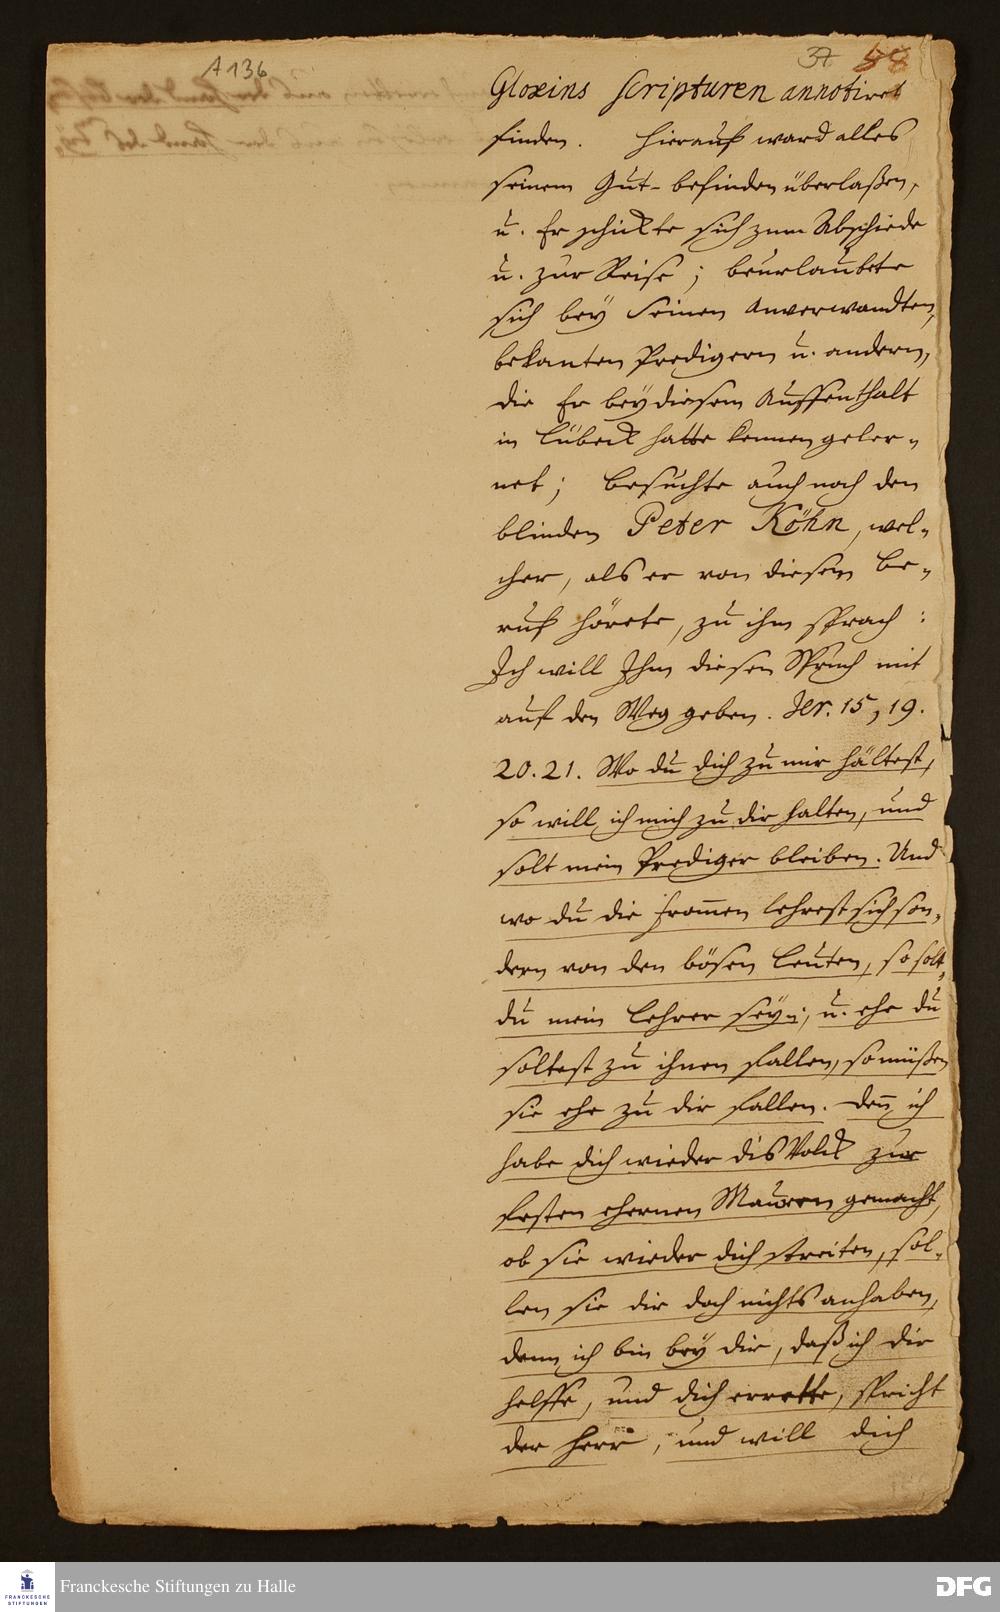 A 136
37 58
Gloxins Scripturen annotiret
finden. Hierauf ward alles
seinem Gut-befinden überlaßen,
u. Er schickte sich zum Abschiede
u. zur Reise; beurlaubete
sich bey seinen Anverwandten,
bekanten Predigern u. andern,
die Er bey diesem Auffenthalt
in Lübeck hatte kennen geler-
net; besuchte auch noch den
blinden Peter Köhn, wel-
cher, als er von diesem Be-
ruf hörete, zu ihm sprach:
Ich will Ihm diesen Spruch mit
auf den Weg geben. Jer. 15, 19.
20. 21. Wo du dich zu mir hältest,
so will ich mich zu dir halten, und
solt mein Prediger bleiben. Und
wo du die frommen lehrest sich son-
dern von den bösen Leuten, so solt
du mein Lehrer seyn; u. ehe du
soltest zu ihnen fallen, so müßen
sie ehe zu dir fallen. Denn ich
habe dich wieder dis Volck zur
festen ehernen Mauren gemacht,
ob sie wieder dich streiten, sol-
len sie dir doch nichts anhaben,
denn ich bin bey dir, daß ich dir
helffe, und dich errette, spricht
der Herr, und will dich
FRANCKESCHE
STIFTUNGEN
Franckesche Stiftungen zu Halle
DFG